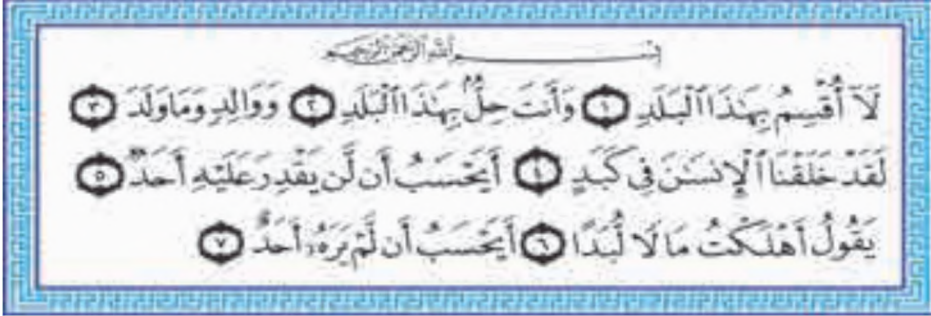 بِسْمِ ٱللَّهِ ٱلرَّحْمَٰنِ ٱلرَّحِيمِ
لَآ أُقْسِمُ بِهَٰذَا ٱلْبَلَدِ ١ وَأَنتَ حِلٌّۢ بِهَٰذَا ٱلْبَلَدِ ٢ وَوَالِدٍ وَمَا وَلَدَ ٣
لَقَدْ خَلَقْنَا ٱلْإِنسَٰنَ فِى كَبَدٍ ٤ أَيَحْسَبُ أَن لَّن يَقْدِرَ عَلَيْهِ أَحَدٌ ٥
يَقُولُ أَهْلَكْتُ مَالًا لُّبَدًا ٦ أَيَحْسَبُ أَن لَّمْ يَرَهُۥٓ أَحَدٌ ٧